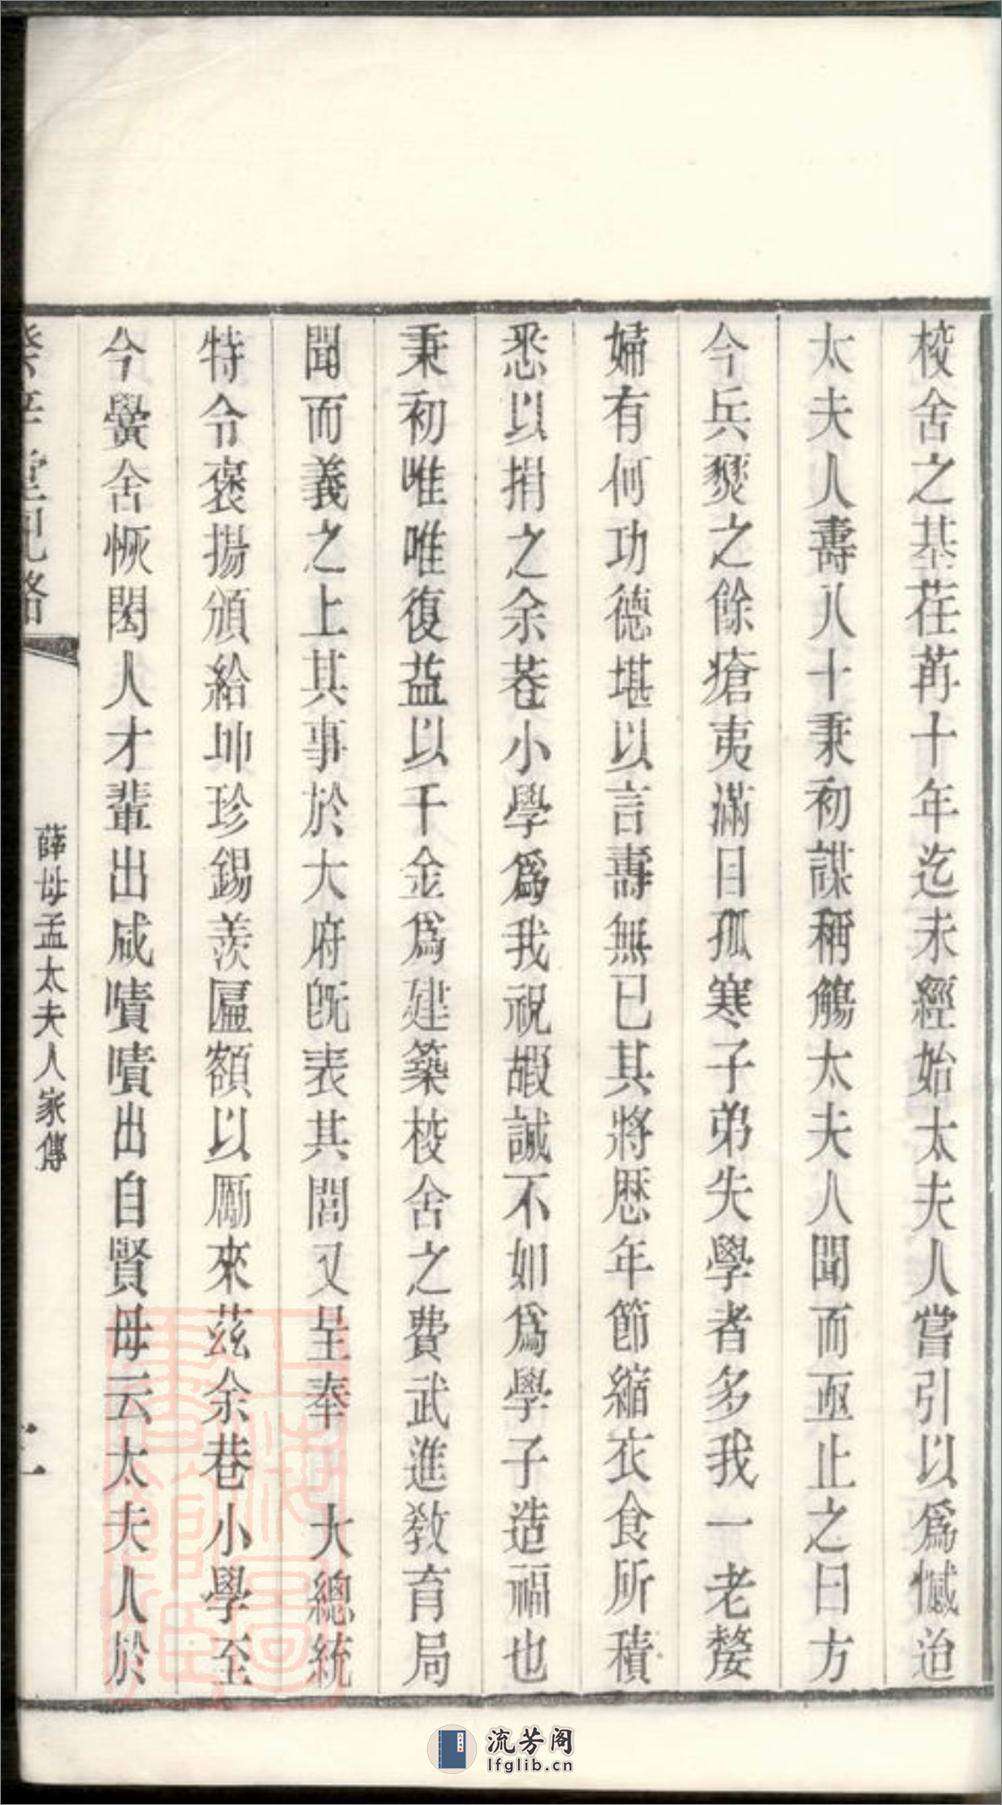 校舍之基荏苒十年迄未經始太夫人嘗引以爲憾迨
太夫人壽八十秉初謀稱觴太夫人聞而亟止之曰方
今兵燹之餘瘡夷滿目孤寒子弟失學者多我一老嫠
婦有何功德堪以言壽無已其將歷年節縮衣食所積
悉以捐之余巷小學爲我祝嘏誠不如爲學子造福也
秉初唯唯復益以千金爲建築校舍之費武進敎育局
聞而義之上其事於大府旣表其閭又呈奉 大總統
特令褒揚頒給坤珍錫羨匾額以厲來茲余巷小學至
今黌舍恢閎人才輩出咸嘖嘖出自賢母云太夫人於
薛母孟太夫人家傳
流芳阁
lfglib.cn